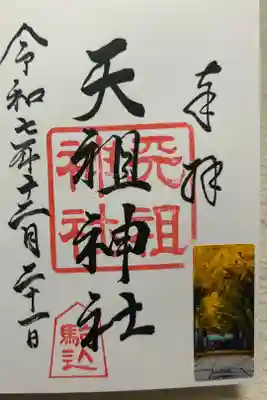 奉拝
天祖神社
天祖
神社
駒込
令和七年十二月二十一日